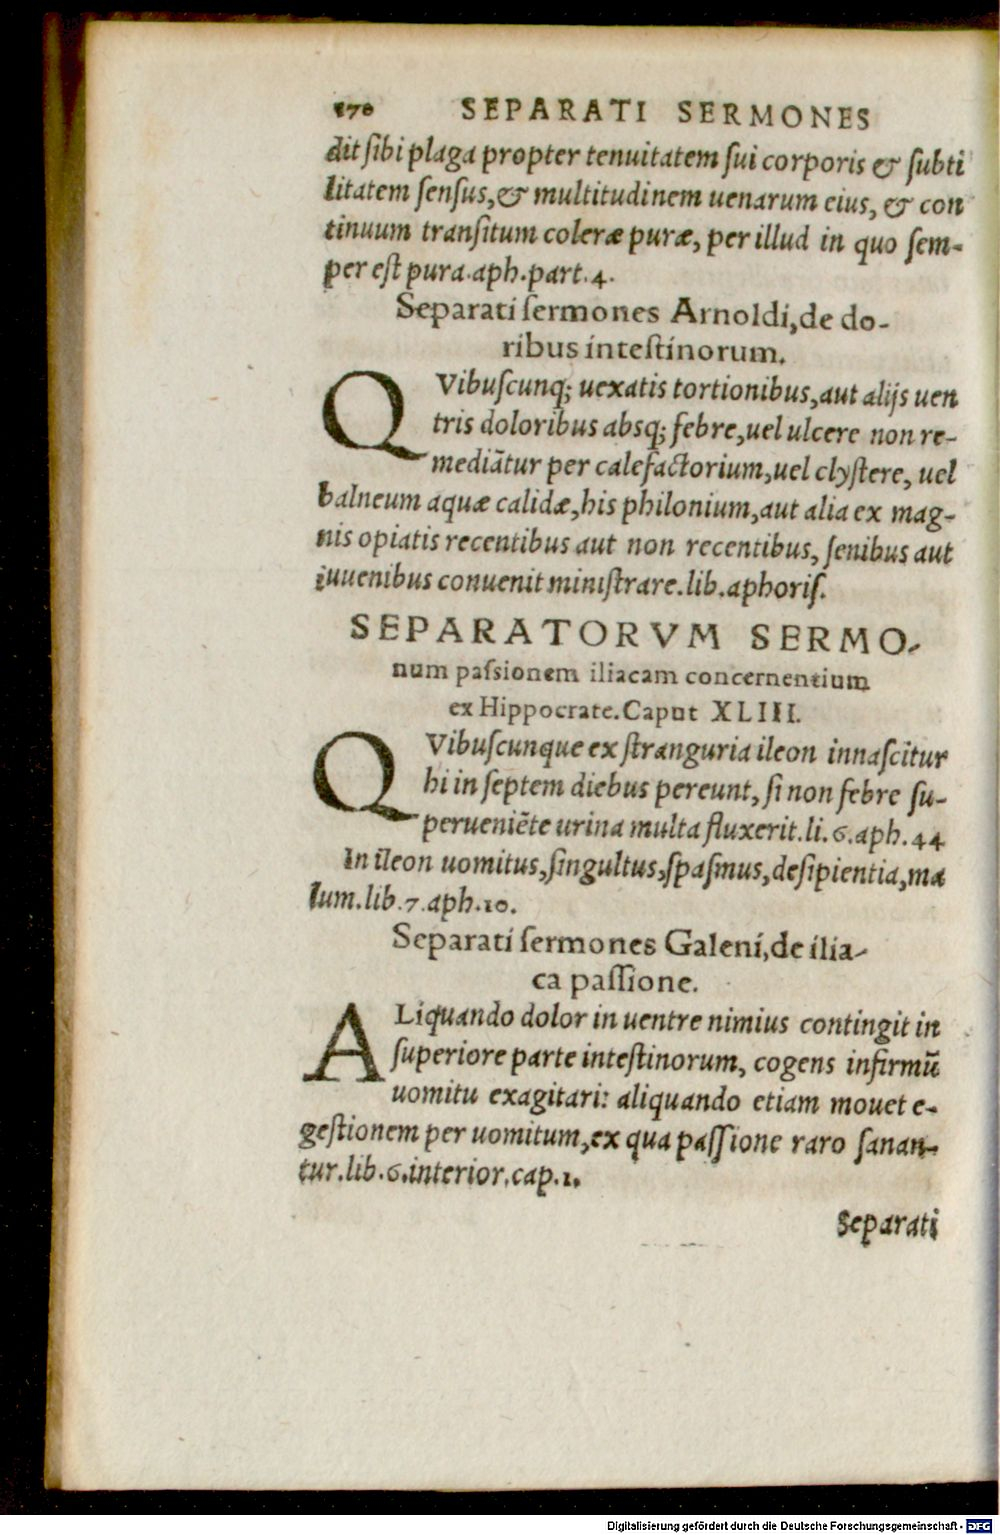 170 SEPARATI SERMONES
dit ſibi plaga propter tenuitatem ſui corporis & ſubti
litatem ſenſus, & multitudinem uenarum eius, & con
tinuum tranſitum coleræ puræ, per illud in quo ſem-
per eſt pura.aph.part.4.
Separati ſermones Arnoldi, de do-
ribus inteſtinorum.
QVibuſcunq; uexatis tortionibus, aut alijs uen
tris doloribus absq; febre, uel ulcere non re-
mediātur per calefactorium, uel clyſtere, uel
balneum aquæ calidæ, his philonium, aut alia ex mag-
nis opiatis recentibus aut non recentibus, ſenibus aut
iuuenibus conuenit miniſtrare.lib.aphoriſ.
SEPARATORVM SERMO-
num paſsionem iliacam concernentium
ex Hippocrate. Caput XLIII.
QVibuſcunque ex ſtranguria ileon innaſcitur
hi in ſeptem diebus pereunt, ſi non febre ſu-
perueniēte urina multa fluxerit.li.6.aph.44
In ileon uomitus, ſingultus, ſpaſmus, deſipientia, ma
lum.lib.7.aph.10.
Separati ſermones Galeni, de ilia-
ca paſſione.
ALiquando dolor in uentre nimius contingit in
ſuperiore parte inteſtinorum, cogens infirmū
uomitu exagitari: aliquando etiam mouet e-
geſtionem per uomitum, ex qua paſſione raro ſanan-
tur.lib.6.interior.cap.1.
Separati
Digitalisierung gefördert durch die Deutsche Forschungsgemeinschaft - DFG